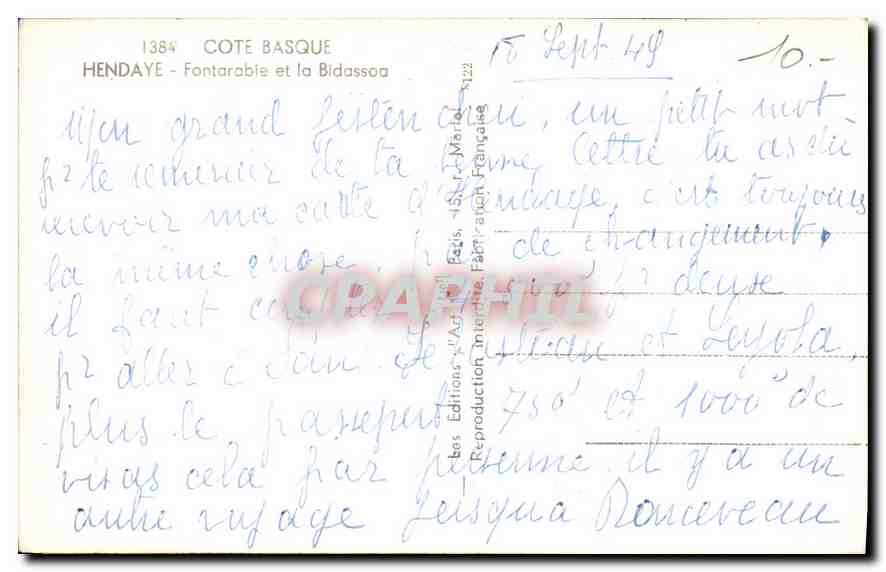 1384 COTE BASQUE
HENDAYE - Fontarabie et la Bidassoa
18 Sept. 49
10.-
Mon grand, un petit mot
pr te remercier de ta bonne lettre tu as dû
recevoir ma carte d'Hendaye, c'est toujours
la même chose, pas de changement,
il faut pr deux
pr aller à San Sebastian et Loyola,
plus le passeport 750 et 1000 de
visas cela par personne il y a un
autre voyage jusqu'à Ronceveau
Les Editions d'Art "Paris, 15, r. Martel
5122
Reproduction Interdite Fabrication Française
CPAPHIL